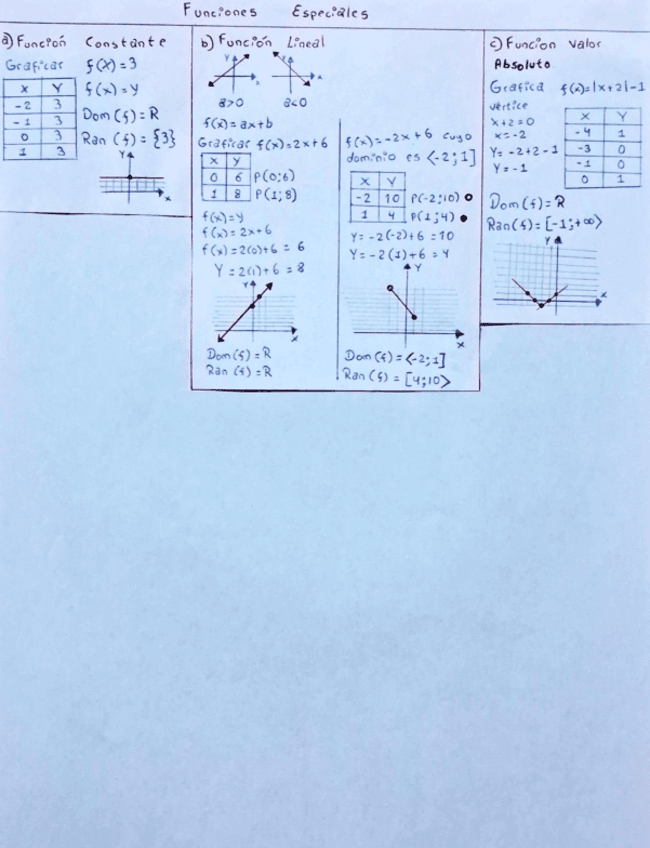 Funciones Especiales
a) Función Constante
Graficar f(x)=3
f(x)=y
X Y
-2 3
-1 3
0 3
1 3
Dom(f)=R
Ran (f)={3}
Y
X
b) Función Lineal
Y Y
X X
a>0 a<0
f(x)=ax+b
Graficar f(x)=2x+6
X Y
0 6 P(0;6)
1 8 P(1;8)
f(x)=y
f(x)=2x+6
f(x)=2(0)+6 = 6
Y=2(1)+6 = 8
Y
X
Dom(f)=R
Ran (f)=R
f(x)=-2x+6 cuyo
dominio es <-2;1]
X Y
-2 10 P(-2;10)
1 4 P(1;4)
Y=-2(-2)+6 =10
Y=-2(1)+6 = 4
Y
X
Dom(f)=<-2;1]
Ran(f) = [4;10>
c) Funcion Valor
Absoluto
Grafica f(x)=|x+2|-1
vértice
x+2=0
x=-2
Y=-2+2-1
Y=-1
X Y
-4 1
-3 0
-1 0
0 1
Dom(f)=R
Ran(f)=[-1;+∞>
Y
X